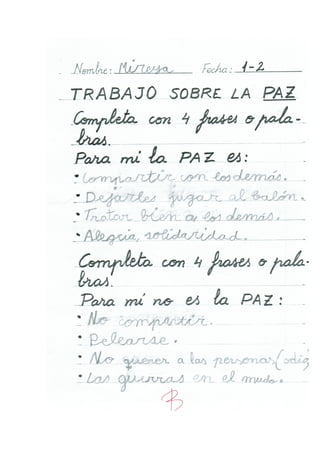 Nombre: Mireya Fecha: 1-2
TRABAJO SOBRE LA PAZ
Completa con 4 frases o pala-
bras.
Para mi la PAZ es:
• Compartir con los demás.
• Dejarles jugar al balón.
• Tratar bien a los demás.
• Alegría, solidaridad.
Completa con 4 frases o pala-
bras.
Para mí no es la PAZ:
• No compartir.
• Pelearse.
• No querer a las personas (odio
• Las guerras en el mudo.
B